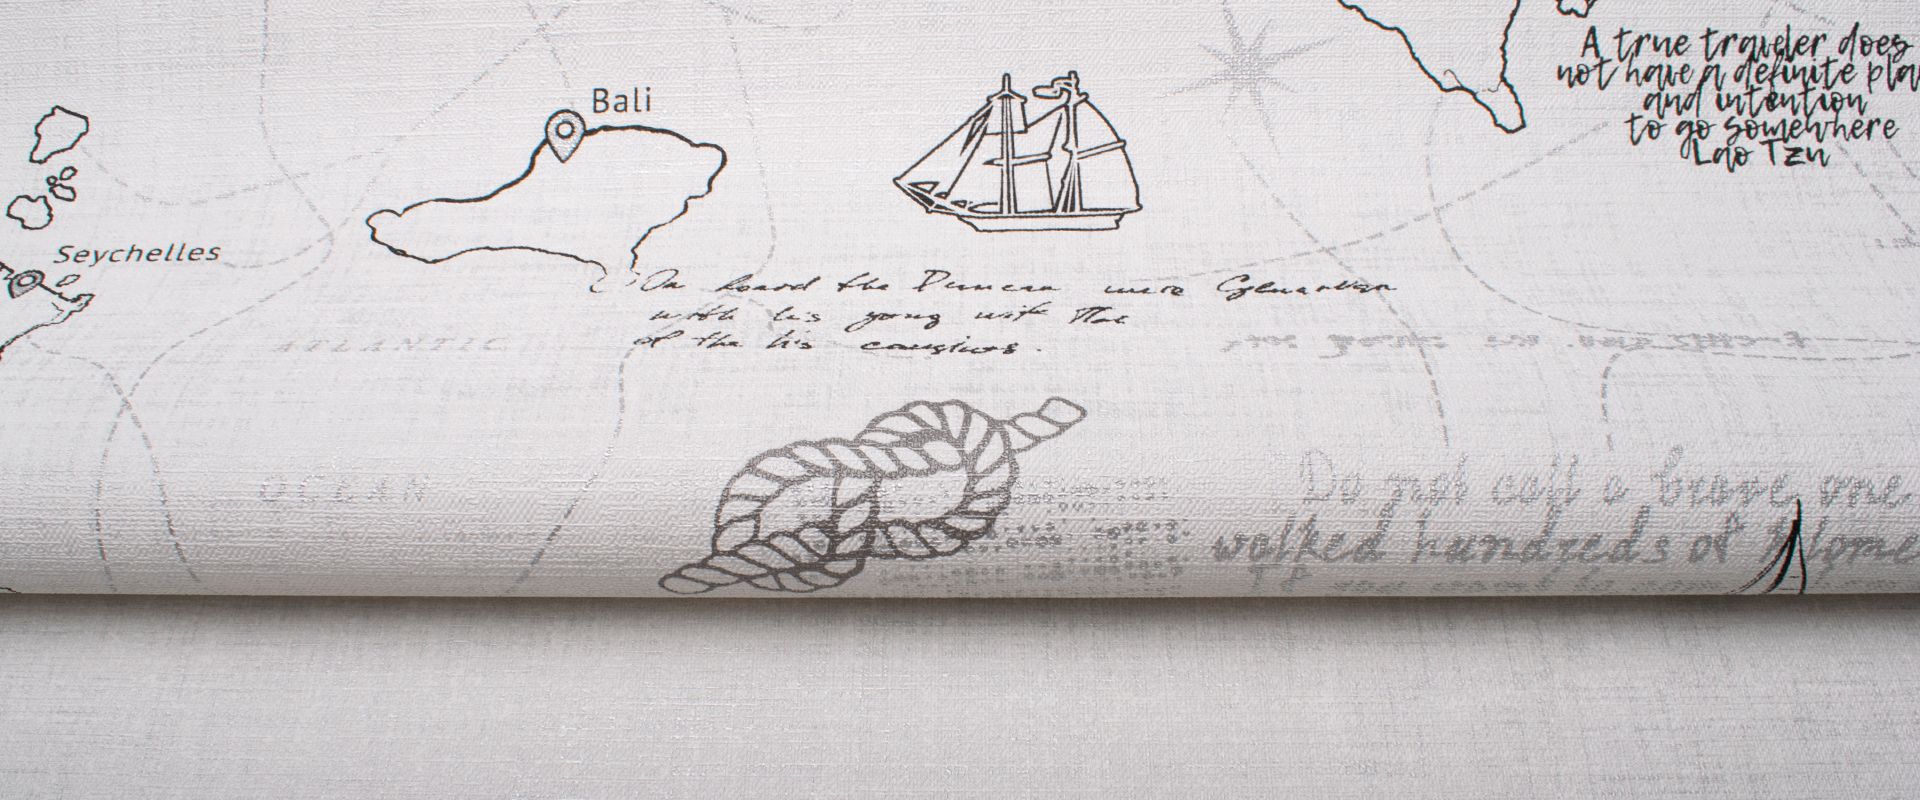 A true traveler does
not have a definite pla
and intention
to go somewhere
Lao Tzu
Bali
Seychelles
On board the Duncan were Glenarvan
with his young wife
of the his
ATLANTIC
OCEAN
Do not call a brave one
walked hundreds of